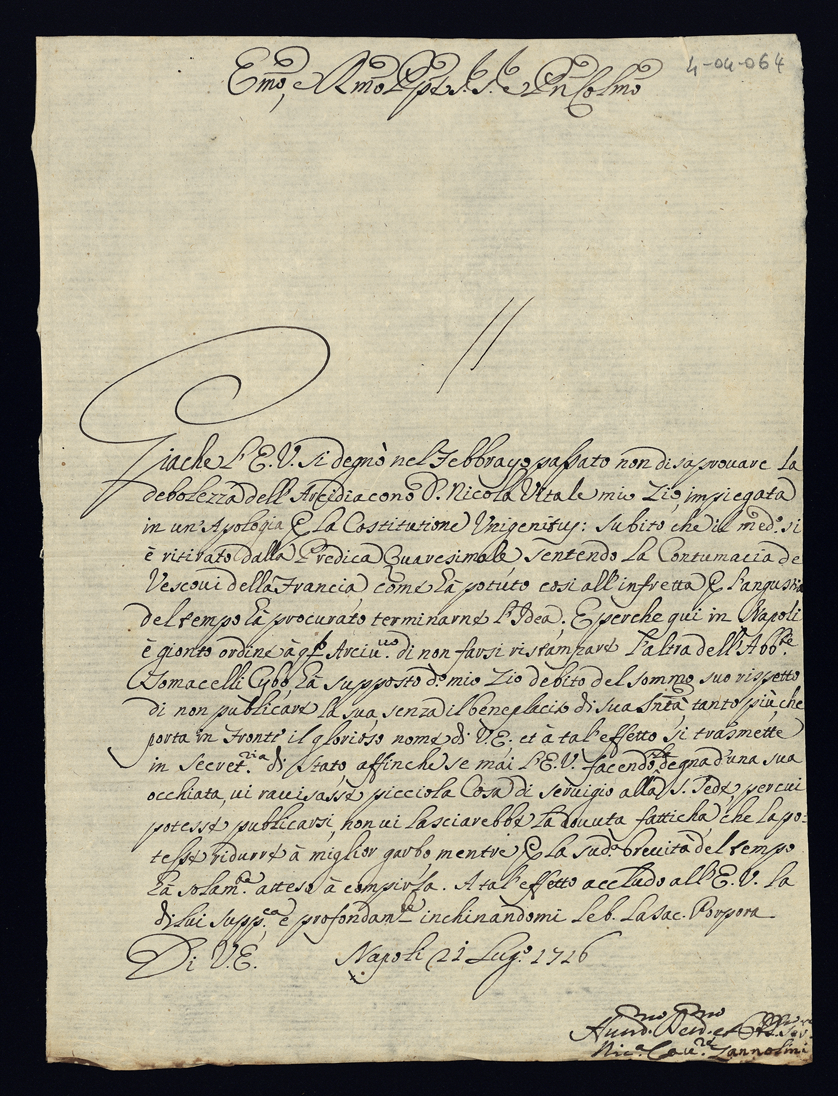 4-04-064
Emo, e Rmo Ppe S. S. e Pn Colmo
Giache l'E.V. si degnò nel Febbrayo passato non disaprouare la
debolezza dell'Arcidiacono D. Nicola Vitale mio Zio, impiegata
in un'Apologia p la Costitutione Unigenitus: subito che il med.o si
è ritirato dalla Predica Quaresimale sentendo la Contumacia de
Vescoui della Francia, come hà potuto così all'infretta p l'angustia
del tempo hà procurato terminarne l'Idea. E perche qui in Napoli
è gionto ordine à qsto Arciu.uo di non farsi ristampare l'altra dell'Abb.te
Tomacelli Cybo, hà supposto d.o mio Zio debito del sommo suo rispetto
di non publicare la sua senza il beneplacito di sua Sntà tanto più, che
porta in fronte il glorioso nome di V.E; et à tal'effetto si trasmette
in Secret.ria di Stato affinche se mai l'E.V. facendola degna d'una sua
occhiata, ui rauisasse picciola Cosa di seruigio alla S. Sede, per cui
potesse publicarsi, non ui lasciarebbe la douuta fatticha, che la po-
tesse ridurre à miglior garbo mentre p la sud.a breuità del tempo
hà solam.te atteso à compirla. A tal'effetto accludo all'E.V. la
di lui supp.ca e profondam.te inchinandomi le b. la sac. Porpora
Di V.E. Napoli 21 Lug.o 1716
Humo. Deuo. et
Nic.a Cau.re Iannolini